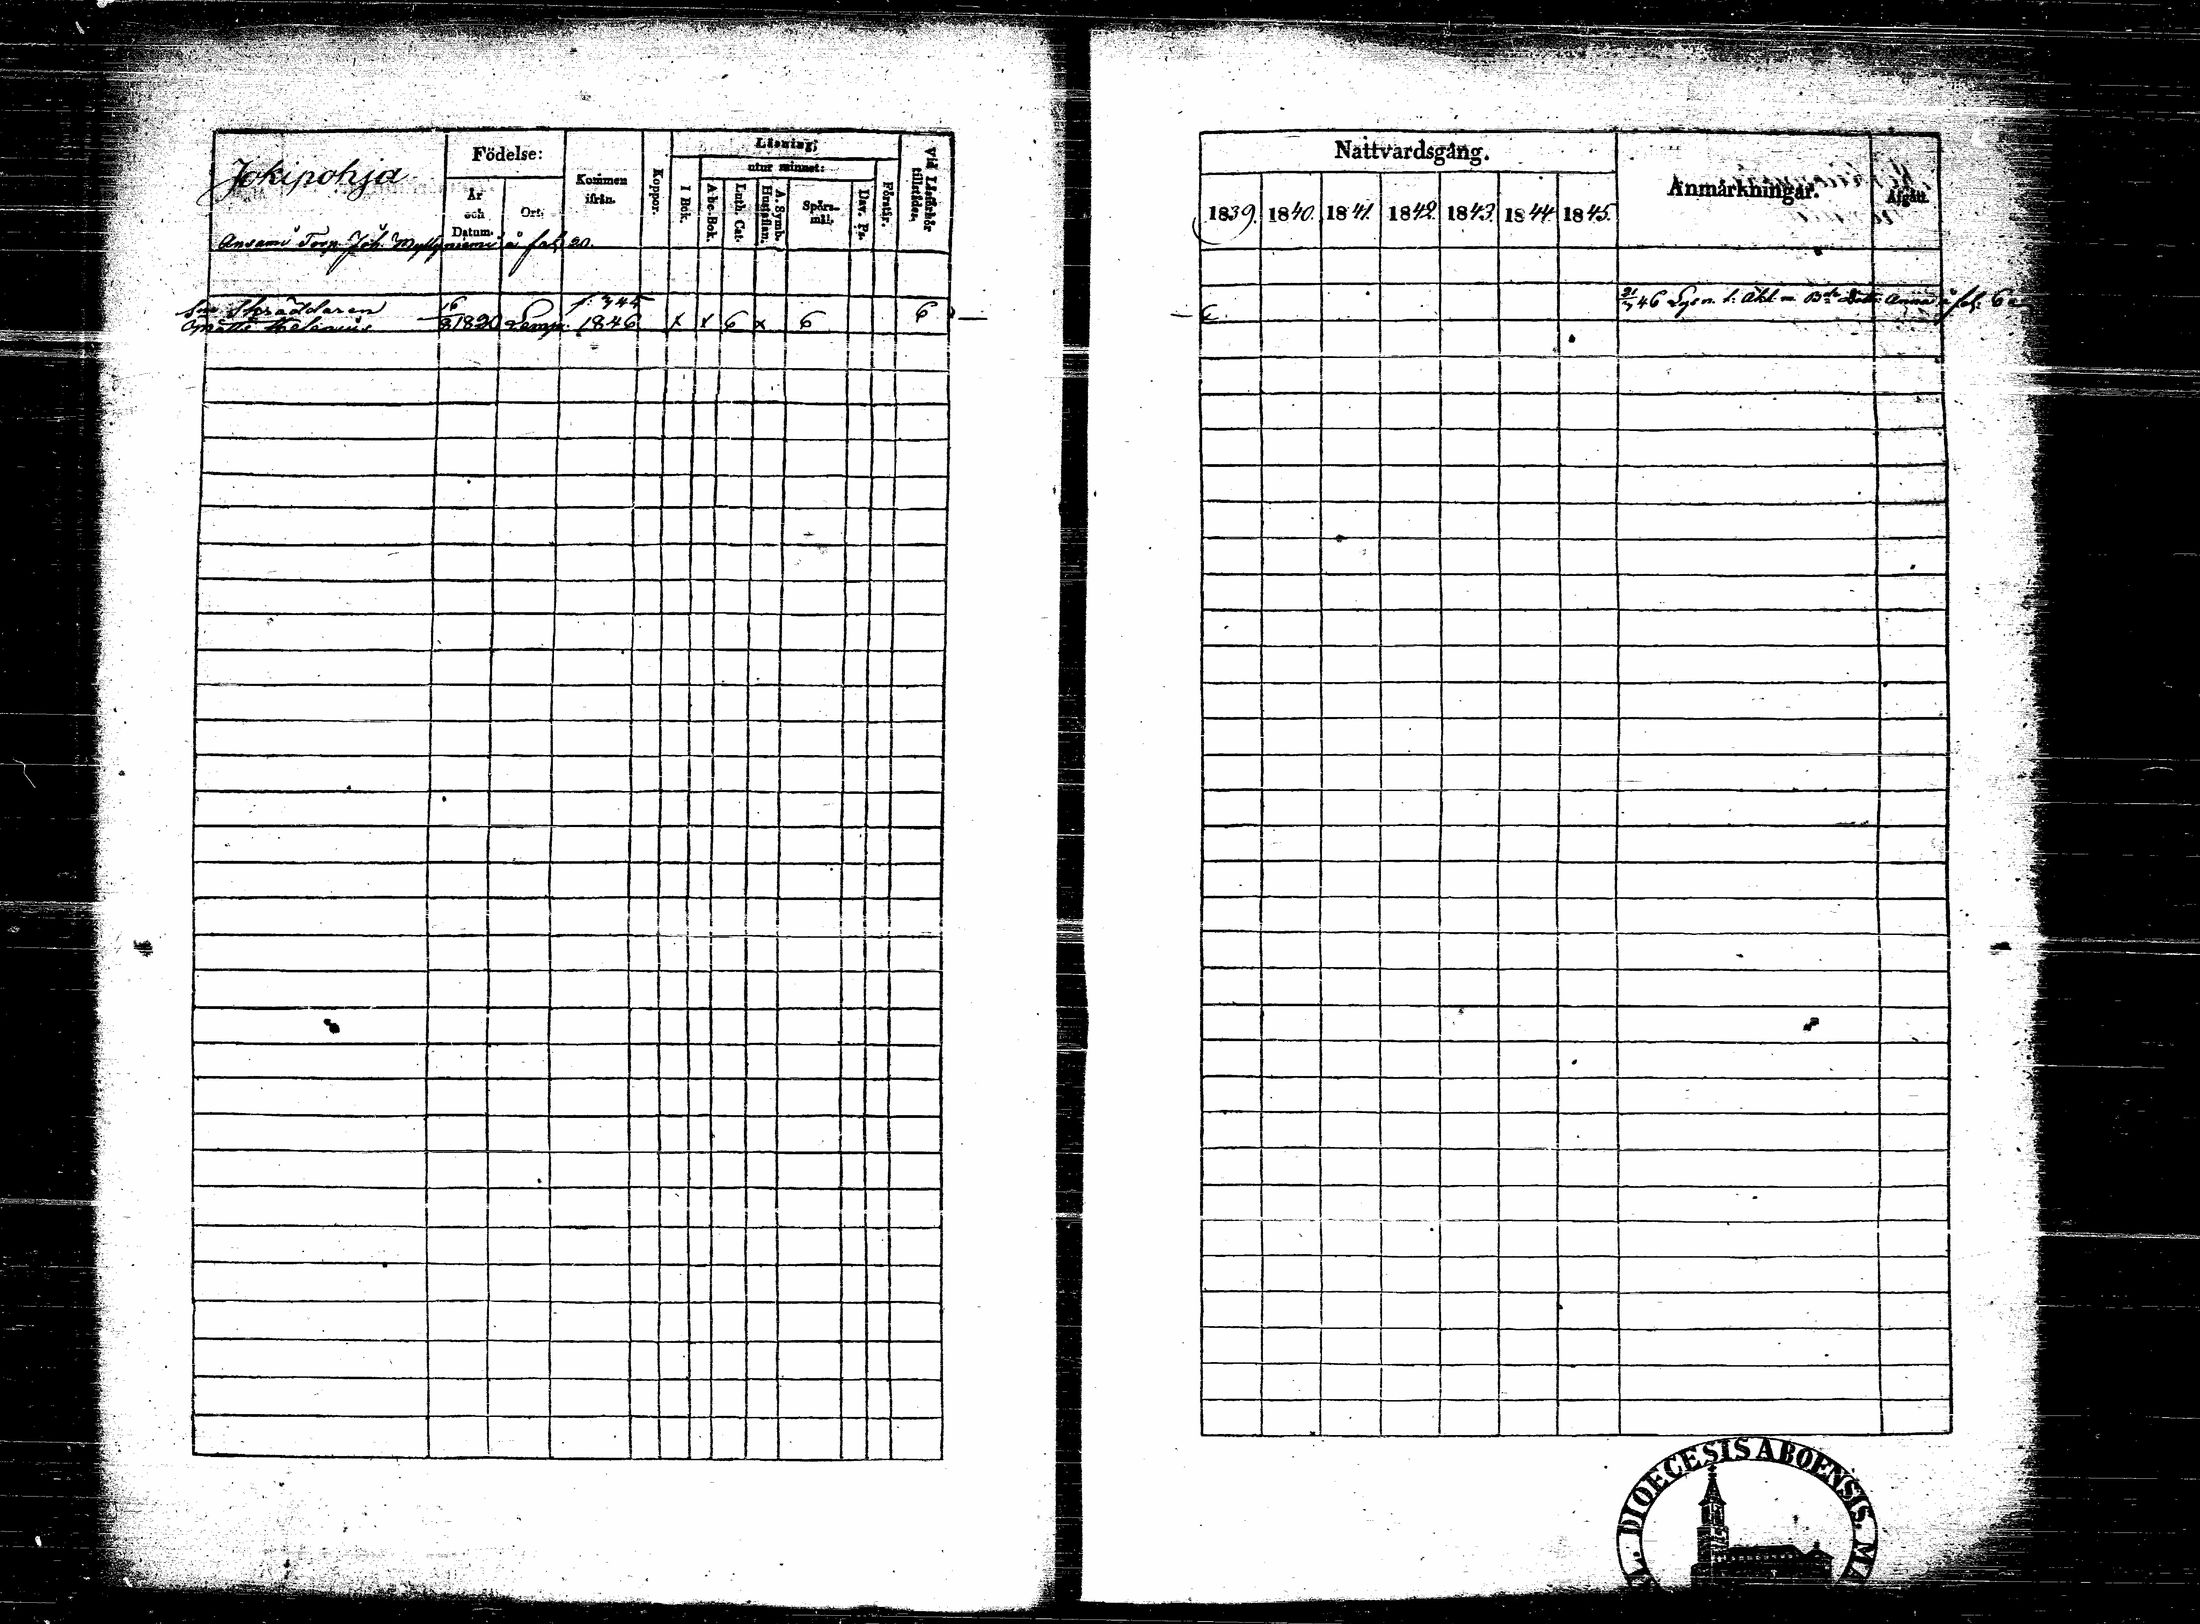 Jokipohja
Födelse:
År och Datum.
Ort.
Kommen ifrån.
Koppor.
Läsning;
utur minnet:
I Bok.
Abc-Bok.
Luth. Cat.
A. Symb. Hustaflan.
Spörsmål.
Dav. Ps.
Förstår.
Vid Läsförhör tillstädes.
Torp. Joh. Myllyniemi å fol. 20.
Skräddaren
6 1820 Lemp. 1846 x x 6 x 6 6
Nattvardsgång.
1839. 1840. 1841. 1842. 1843. 1844. 1845.
Anmärkningar.
Afgått.
46 Lysn. t. Äkt. m. Dott. Anna å fol. 6
6
DIOECESIS ABOENSIS.